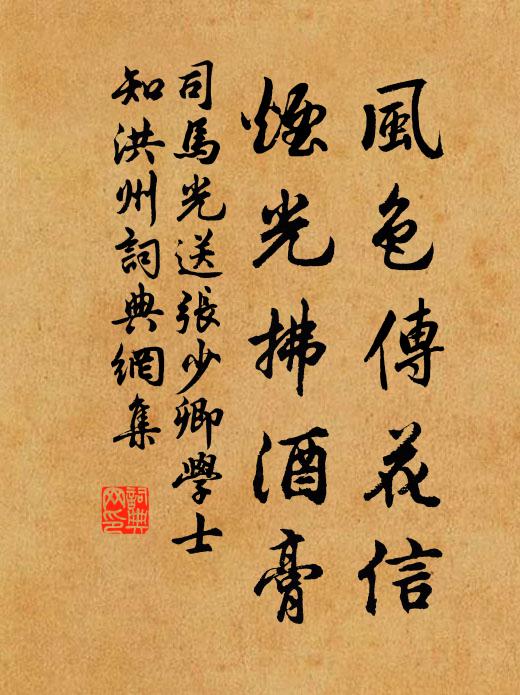 風色傳花信
煙光拂酒膏
司馬光送張少卿學士
知洪州詞典網集
詞典網印